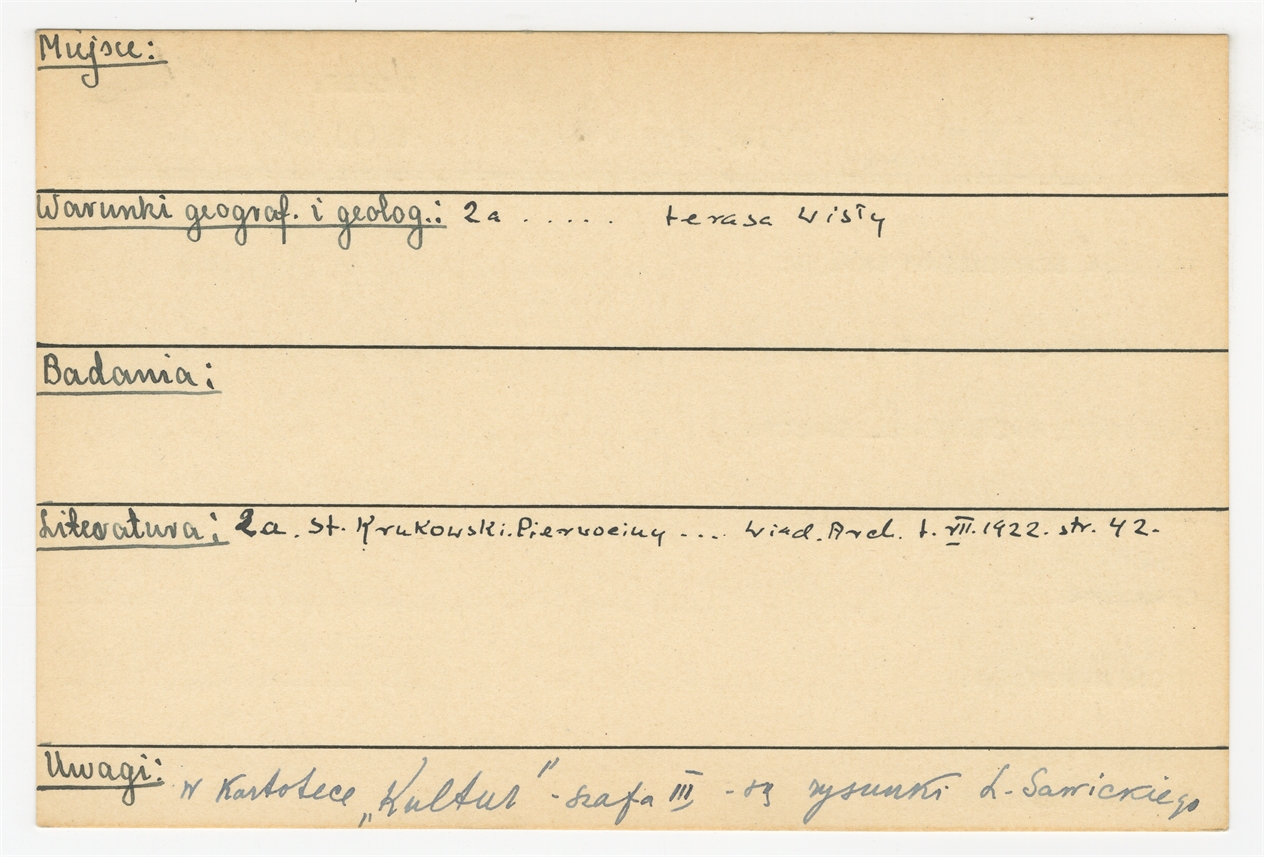 Miejsce:
Warunki geograf. i geolog.: 2a ..... terasa Wisły
Badania:
Literatura: 2a. St. Krukowski. Pierwociny ... Wiad. Arch. t. VII. 1922. str. 42.
Uwagi: W Kartotece „Kultur" - szafa III - są rysunki L. Sawickiego